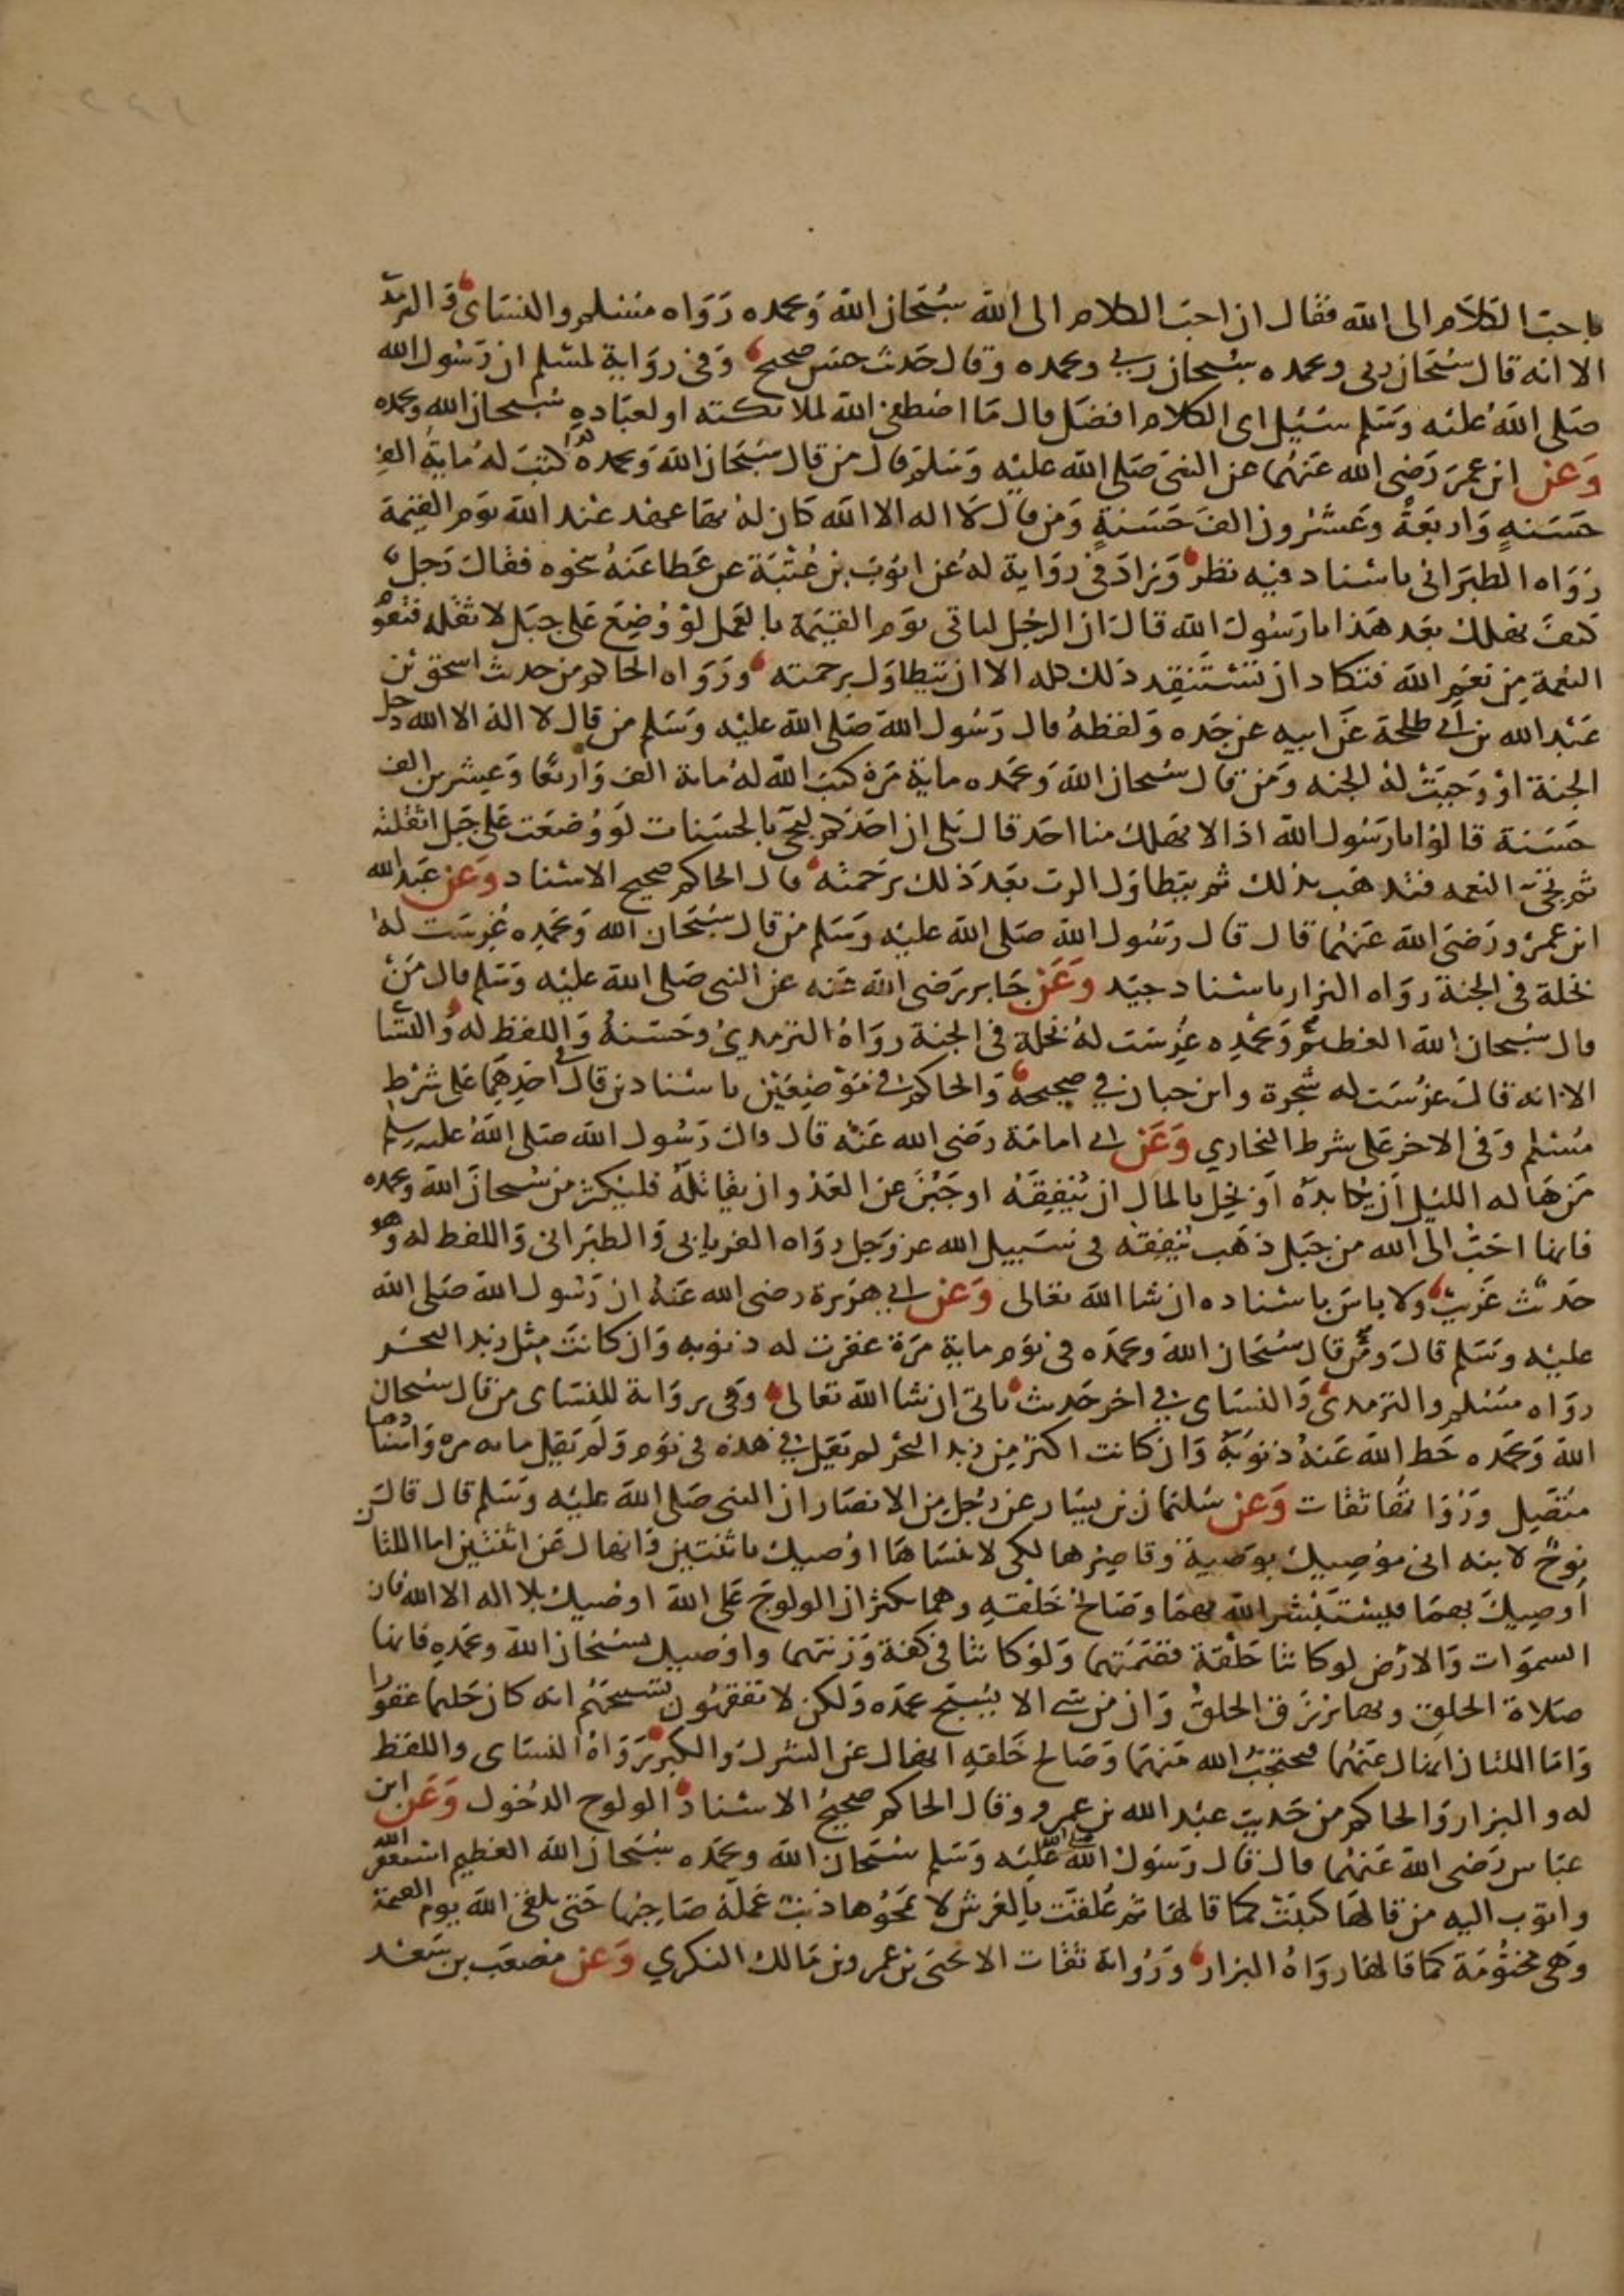 باحب الكلام الى الله فقال ان احب الكلام الى الله سبحان الله وبحمده رواه مسلم والنساى والترمذ
الا انه قال سبحان ربى وبحمده سبحان ربي وبحمده وقال حديث حسن صحيح وفى رواية لمسلم ان رسول الله
صلى الله عليه وسلم سئيل اى الكلام افضل قال ما اصطفى الله لملائكته او لعباده سبحان الله وبحمده
وعن ابن عمر رضى الله عنهما عن النبى صلى الله عليه وسلم قال من قال سبحان الله وبحمده كتب له ماية الف
حسنة واربعة وعشرون الف حسنة ومن قال لا اله الا الله كان له بها عهد عند الله يوم القيمة
رواه الطبرانى باسناد فيه نظر وزاد فى رواية له عن ايوب بن عتبة عن عطا عنه نحوه فقال رجل
كيف نهلك بعد هذا يا رسول الله قال ان الرجل لياتى يوم القيمة بالعمل لو وضع على جبل لاثقله فتقو
النعمة من نعم الله فتكاد ان تستنفد ذلك كله الا ان يتطاول برحمته ورواه الحاكم من حديث اسحق بن
عبد الله بن ابي طلحة عن ابيه عن جده ولفظه قال رسول الله صلى الله عليه وسلم من قال لا اله الا الله دخل
الجنة او وجبت له الجنه ومن قال سبحان الله وبحمده ماية مرة كتب الله له ماية الف واربعا وعشرين الف
حسنة قالوا يا رسول الله اذا لا يهلك منا احد قال بلى ان احدكم ليجى بالحسنات لو وضعت على جبل اثقلته
ثم تجى النعمه فتذهب بذلك ثم يتطاول الرب بعد ذلك برحمته قال الحاكم صحيح الاسناد وعن عبد الله
ابن عمرو رضى الله عنهما قال قال رسول الله صلى الله عليه وسلم من قال سبحان الله وبحمده غرست له
نخلة فى الجنة رواه البزار باسناد جيد وعن جابر رضى الله عنه عن النبى صلى الله عليه وسلم قال من
قال سبحان الله العظيم وبحمده غرست له نخلة فى الجنة رواه الترمدى وحسنه واللفظ له والنسا
الا انه قال غرست له شجرة وابن حبان في صحيحه والحاكم في موضعين باسنادين قال في احدهما على شرط
مسلم وفى الاخر على شرط البخاري وعن ابي امامة رضى الله عنه قال قال رسول الله صلى الله عليه وسلم
من هاله الليل ان يكابده او بخل بالمال ان ينفقه او جبن عن العدو ان يقاتله فليكثر من سبحان الله وبحمده
فانها احب الى الله من جبل ذهب ينفقه فى سبيل الله عز وجل رواه الفريابى والطبرانى واللفظ له وهو
حديث غريب ولا باس باسناده ان شا الله تعالى وعن ابي هريرة رضى الله عنه ان رسول الله صلى الله
عليه وسلم قال ومن قال سبحان الله وبحمده فى يوم ماية مرة غفرت له ذنوبه وان كانت مثل زبد البحر
رواه مسلم والترمدى والنساى في اخر حديث ياتى ان شا الله تعالى وفى رواية للنساى من قال سبحان
الله وبحمده حط الله عنه ذنوبه وان كانت اكثر من زبد البحر لم يقل في هذه فى يوم ولم يقل ماية مره واسنادهما
متصل ورواتها ثقات وعن سليمان بن يسار عن رجل من الانصار ان النبى صلى الله عليه وسلم قال قال
نوح لابنه انى موصيك بوصية وقاصرها لكى لا تنساها اوصيك باثنتين وانهاك عن اثنتين اما اللتان
اوصيك بهما فيستبشر الله بهما وصالح خلقه وهما يكثران الولوج على الله اوصيك بلا اله الا الله فان
السموات والارض لو كانتا حلقة فصمتهما ولو كانتا فى كفة وزنتهما واوصيك بسبحان الله وبحمده فانها
صلاة الخلق وبها يرزق الخلق وان من شى الا يسبح بحمده ولكن لا تفقهون تسبيحهم انه كان حليما غفورا
واما اللتان انهاك عنهما فيحتجب الله منهما وصالح خلقه انهاك عن الشرك والكبر رواه النساى واللفظ
له والبزار والحاكم من حديث عبد الله بن عمرو وقال الحاكم صحيح الاسناد الولوج الدخول وعن ابن
عباس رضى الله عنهما قال قال رسول الله صلى الله عليه وسلم سبحان الله وبحمده سبحان الله العظيم استغفر الله
واتوب اليه من قالها كتبت كما قالها ثم علقت بالعرش لا يمحوها ذنب عمله صاحبها حتى يلقى الله يوم القيمة
وهى مختومة كما قالها رواه البزار ورواته ثقات الا يحيى بن عمرو بن مالك النكري وعن مصعب بن سعد